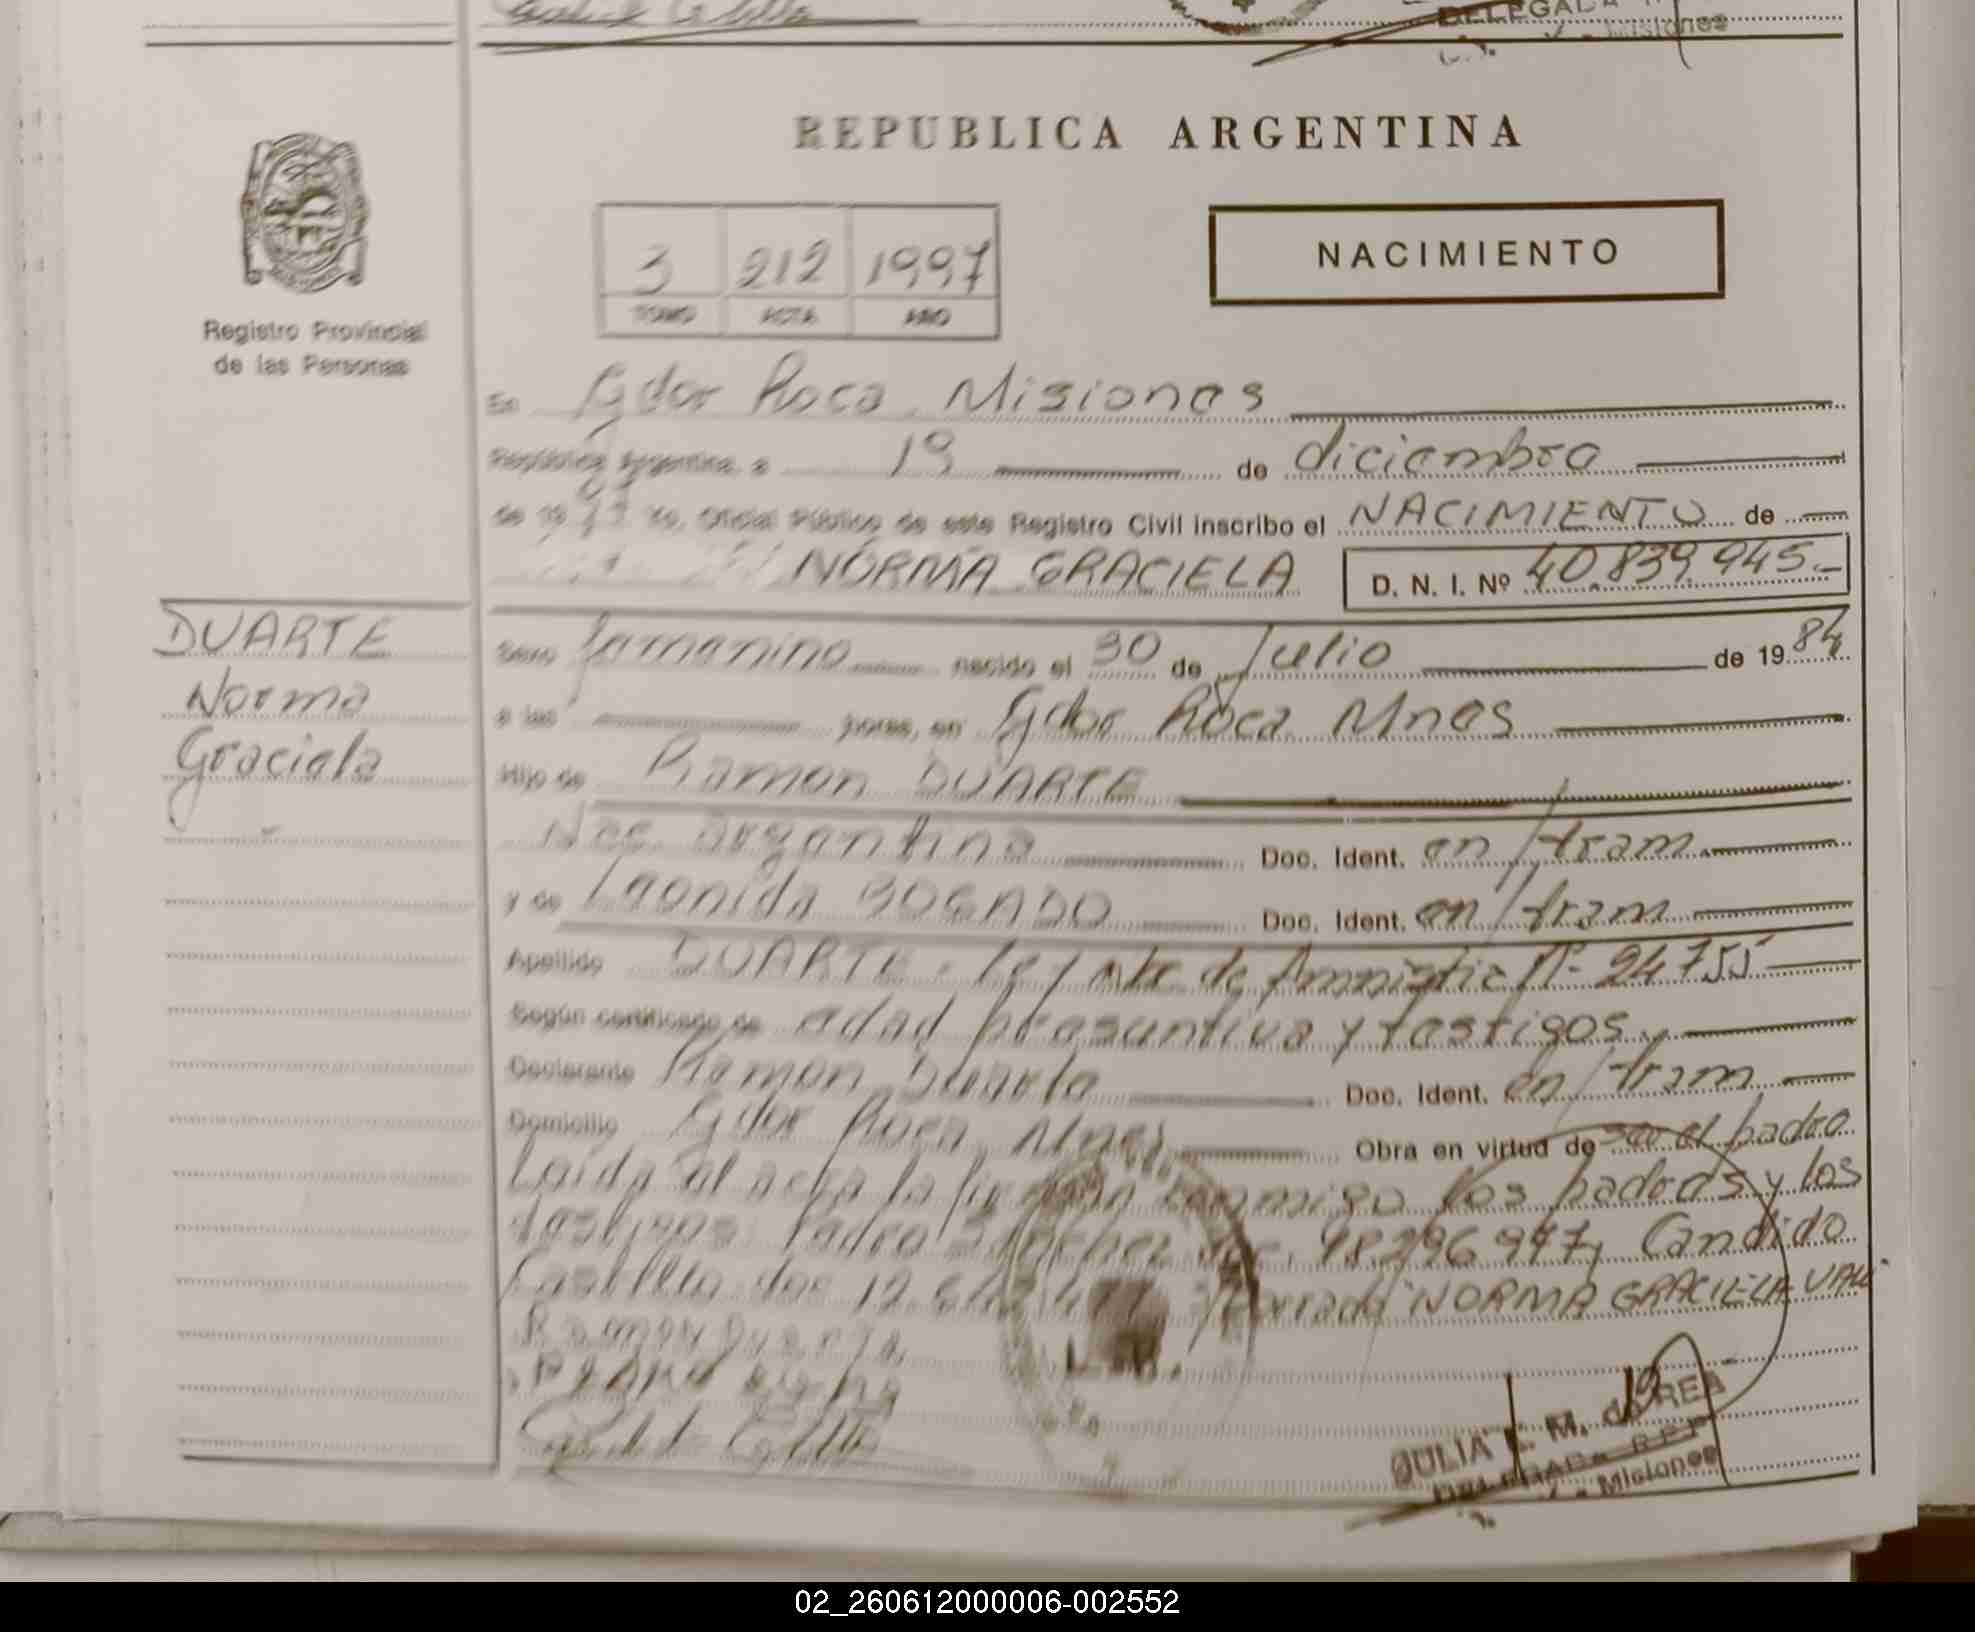 REPUBLICA ARGENTINA
NACIMIENTO
3 212 1997
TOMO ACTA AÑO
Registro Provincial
de las Personas
En Gdor Roca Misiones
República Argentina, a 19 de diciembre
de 1997 Yo, Oficial Público de este Registro Civil inscribo el NACIMIENTO de
NORMA GRACIELA D. N. I. Nº 40.839.945.-
DUARTE
Norma
Graciela
Sexo femenino nacido el 30 de Julio de 1984
a las horas, en Gdor Roca Mnes
Hijo de Ramon DUARTE
Nac. argentina Doc. Ident. en/tram.
y de Leonida BOGADO Doc. Ident. en/tram
Apellido DUARTE. Ley de Amnistia Nº 24755
Según certificado de edad presuntiva y testigos
Declarante Ramon Duarte Doc. Ident. en/tram
Domicilio Gdor Roca Mnes Obra en virtud de ser el padre
Leida el acta la firman conmigo los padres y los
testigos Pedro Sanchez doc. Candido
Castillo doc 12.642.477 "NORMA GRACIELA VALE"
Ramon Duarte
JULIA M. de REA
DELEGADA R.P.P.
Misiones
02_260612000006-002552